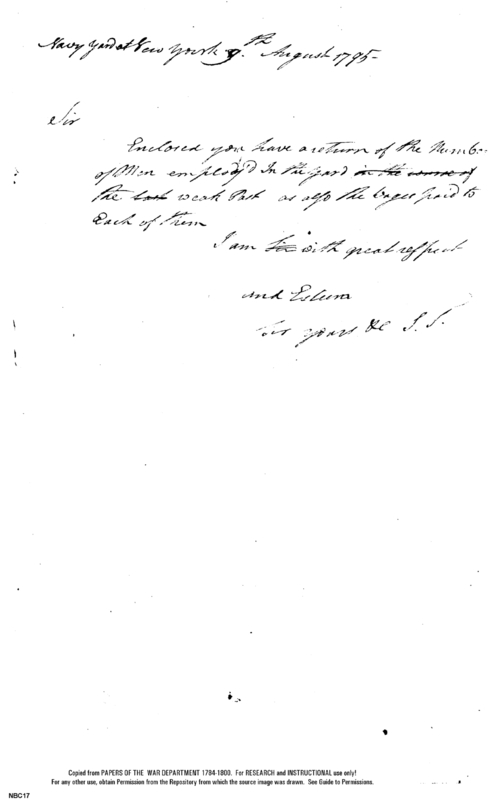 Navy Yard at New York 9th August 1795-
Sir
Enclosed you have a return of the Numbr
of Men employ'd In the yard in the course of
the last weak Past as also the Wages paid to
Each of them
I am with great respect
and Esteem
Sir yours &c J. J.
Copied from PAPERS OF THE WAR DEPARTMENT 1784-1800. For RESEARCH and INSTRUCTIONAL use only!
For any other use, obtain Permission from the Repository from which the source image was drawn. See Guide to Permissions.
NBC17